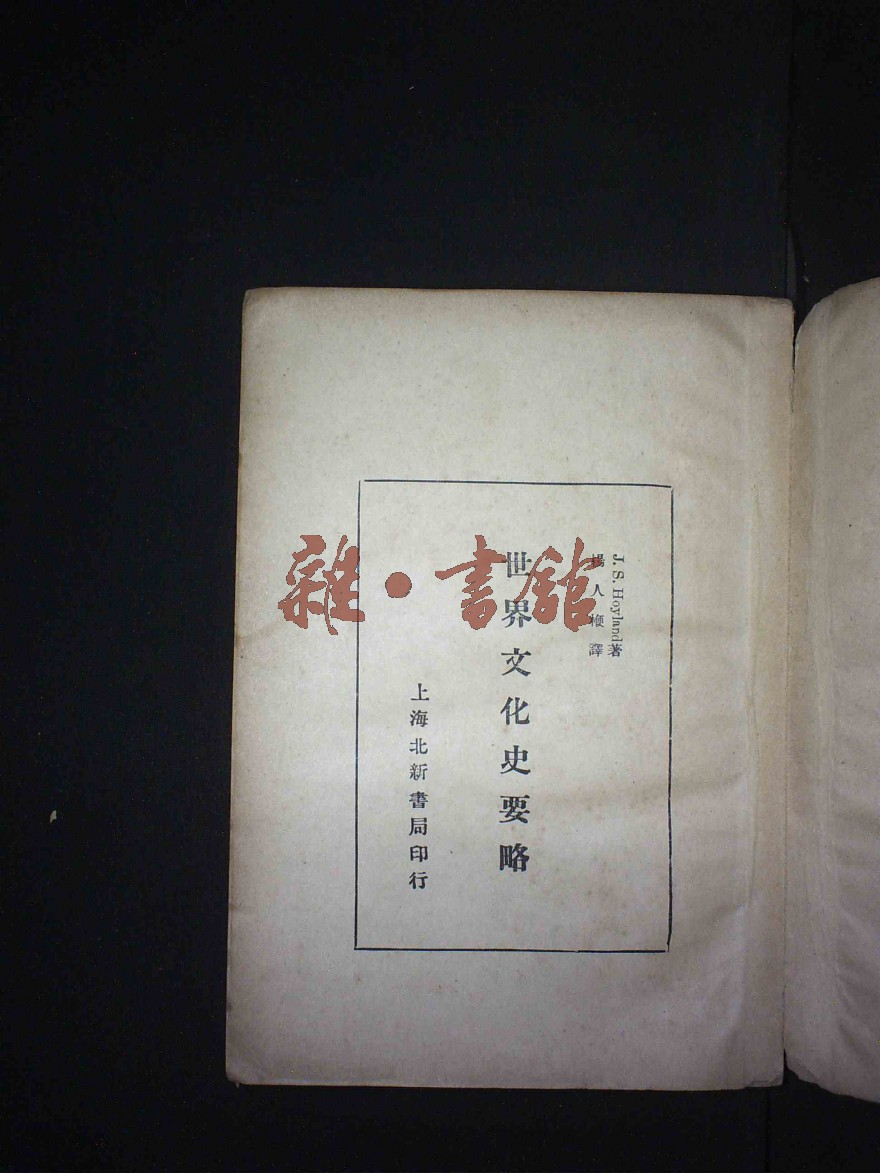 J. S. Hoyland著
楊人楩譯
世界文化史要略
上海北新書局印行
雜·書館